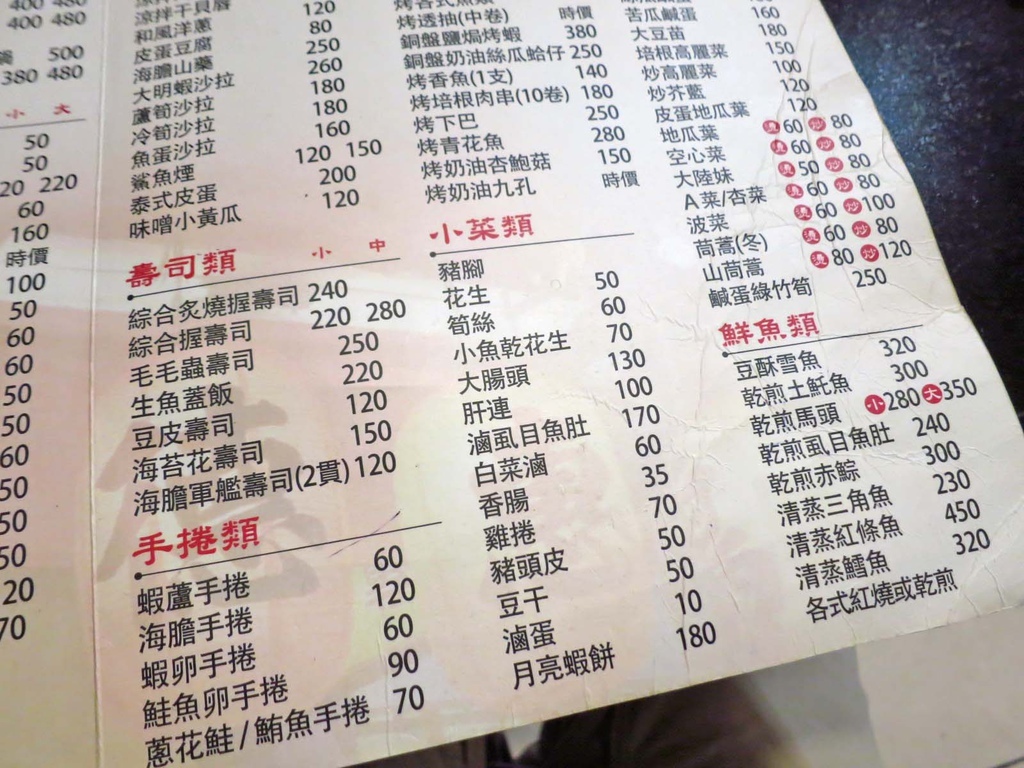 400 480
400 480
鍋 500
380 480
小 大
50
50
20 220
60
160
時價
100
50
60
60
50
50
60
50
50
50
20
70
涼拌干貝唇
和風洋蔥 120
皮蛋豆腐 80
海膽山藥 250
大明蝦沙拉 260
蘆筍沙拉 180
冷筍沙拉 180
魚蛋沙拉 160
鯊魚煙 120 150
泰式皮蛋 200
味噌小黃瓜 120
壽司類 小 中
綜合炙燒握壽司 240
綜合握壽司 220 280
毛毛蟲壽司 250
生魚蓋飯 220
豆皮壽司 120
海苔花壽司 150
海膽軍艦壽司(2貫) 120
手捲類
蝦蘆手捲 60
海膽手捲 120
蝦卵手捲 60
鮭魚卵手捲 90
蔥花鮭/鮪魚手捲 70
烤各式魚類
烤透抽(中卷) 時價
銅盤鹽焗烤蝦 380
銅盤奶油絲瓜蛤仔 250
烤香魚(1支) 140
烤培根肉串(10卷) 180
烤下巴 250
烤青花魚 280
烤奶油杏鮑菇 150
烤奶油九孔 時價
小菜類
豬腳
花生 50
筍絲 60
小魚乾花生 70
大腸頭 130
肝連 100
滷虱目魚肚 170
白菜滷 60
香腸 35
雞捲 70
豬頭皮 50
豆干 50
滷蛋 10
月亮蝦餅 180
苦瓜鹹蛋 160
大豆苗 180
培根高麗菜 150
炒高麗菜 100
炒芥藍 120
皮蛋地瓜葉 120
地瓜葉 燙60 炒80
空心菜 燙60 炒80
大陸妹 燙50 炒80
A菜/杏菜 燙60 炒80
波菜 燙60 炒100
茼蒿(冬) 燙60 炒80
山茼蒿 燙80 炒120
鹹蛋綠竹筍 250
鮮魚類
豆酥雪魚 320
乾煎土魠魚 300
乾煎馬頭 小280 大350
乾煎虱目魚肚 240
乾煎赤鯮 300
清蒸三角魚 230
清蒸紅條魚 450
清蒸鱈魚 320
各式紅燒或乾煎